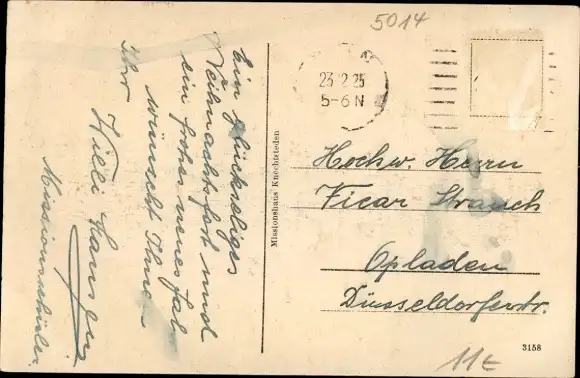 5014
23 12 25
5-6 N
Ein glückseliges
Weihnachtsfest und
ein frohes neues Jahr
wünscht Ihnen
Ihr
Willi Hansen
Missionsschüler.
Missionshaus Knechtsteden
Hochw. Herrn
Vicar Strauch
Opladen
Düsseldorferstr.
3158
11€